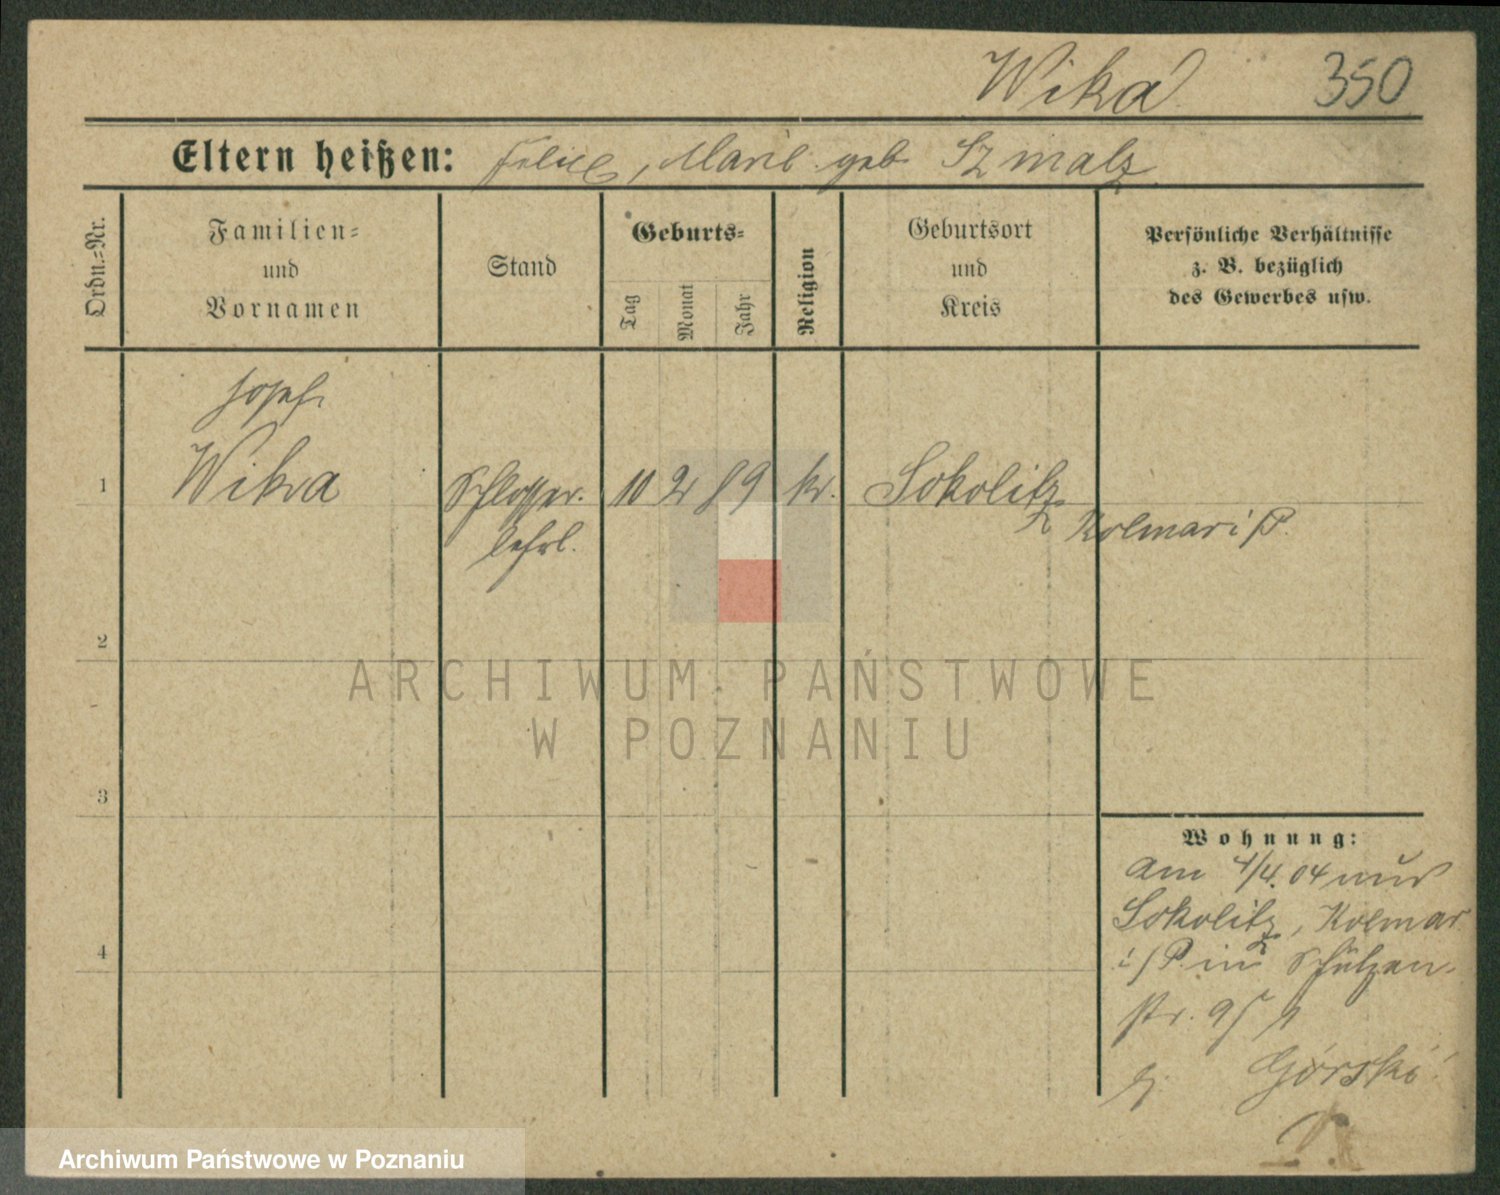 Wika 350
Eltern heißen: Felix, Marie geb. Szmalz
Ordn.=Nr.
Familien=
und
Vornamen
Stand
Geburts=
Tag
Monat
Jahr
Religion
Geburtsort
und
Kreis
Persönliche Verhältnisse
z. B. bezüglich
des Gewerbes usw.
Josef
1 Wika Schlosser. 10 2 89 k. Sokolitz
lehrl. Kolmar i/P.
2
3
4
Wohnung:
am 1/4. 04 aus
Sokolitz, Kolmar
i/P. in Schützen-
str.
Górski
ARCHIWUM PAŃSTWOWE
W POZNANIU
Archiwum Państwowe w Poznaniu